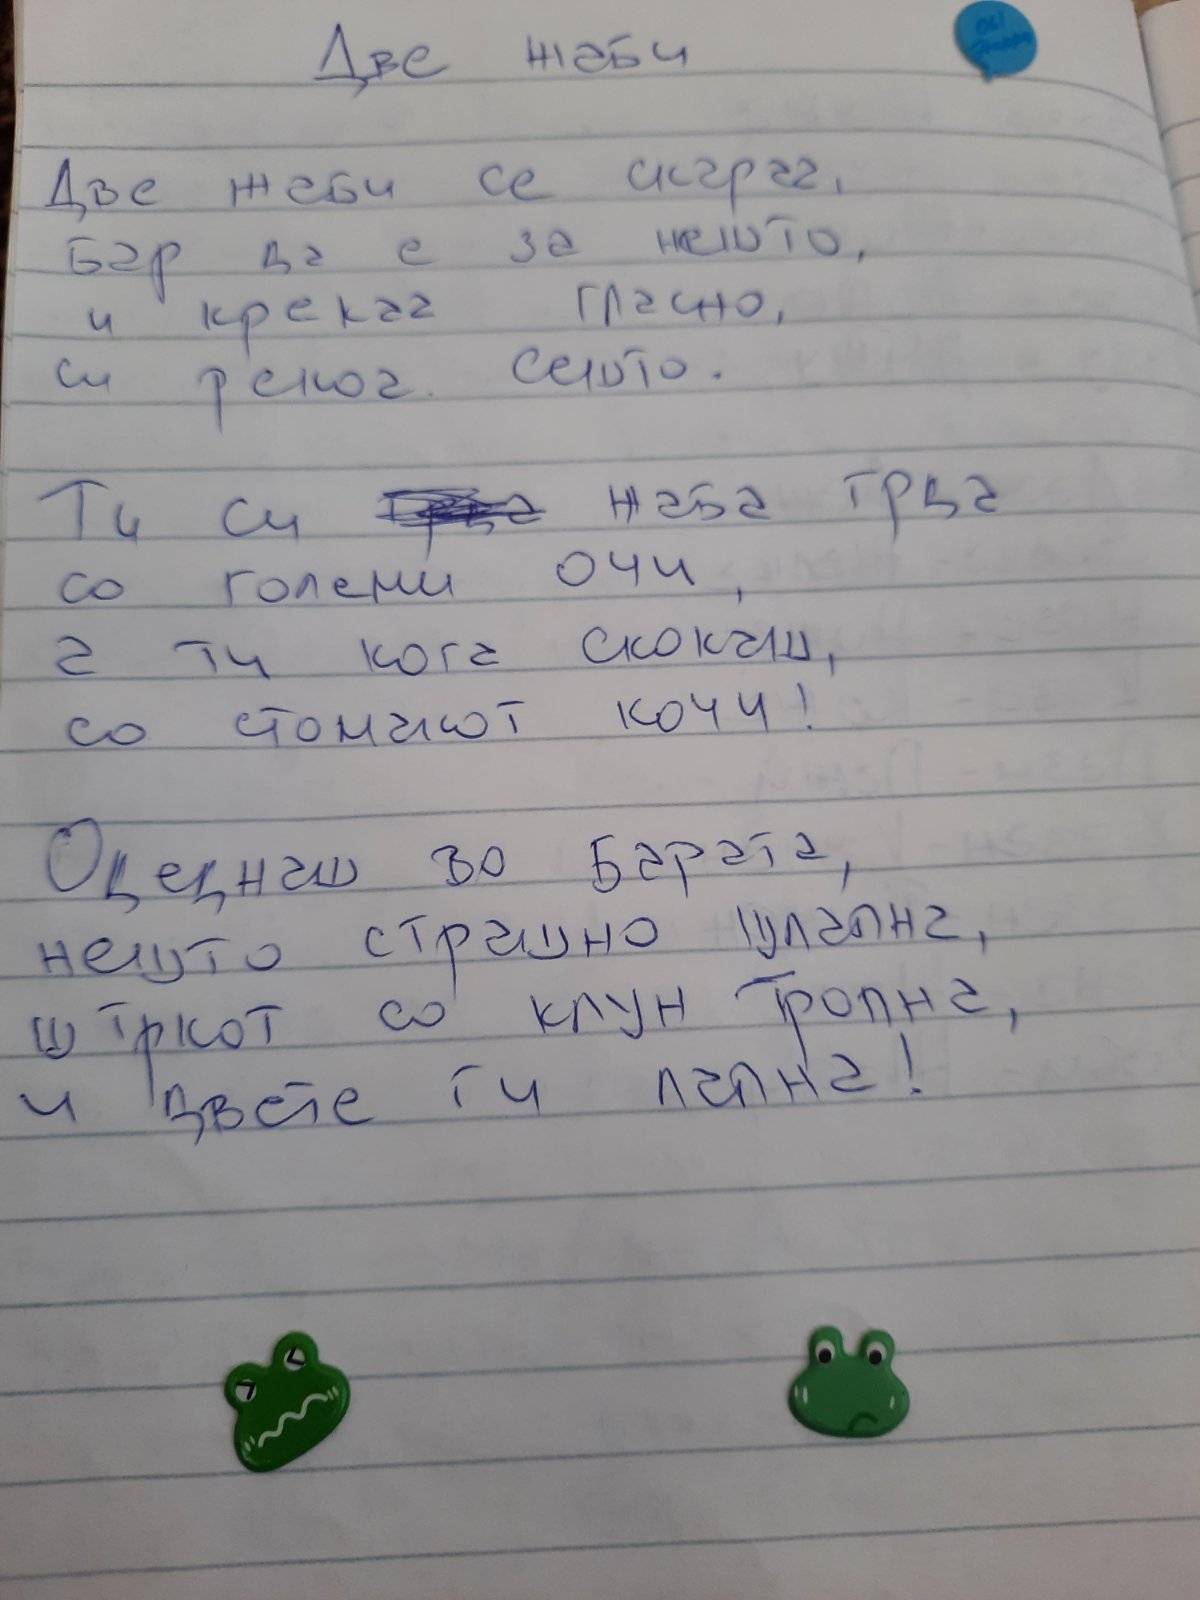 Две жаби
Две жаби се скараа,
бар да е за нешто,
и крекаа гласно,
си рекоа. сешто.
Ти си жаба грда
со големи очи,
а ти кога скокаш,
со стомакот кочи!
Одеднаш во барата,
нешто страшно шлапна,
штркот со клун тропна,
и двете ги лапна!